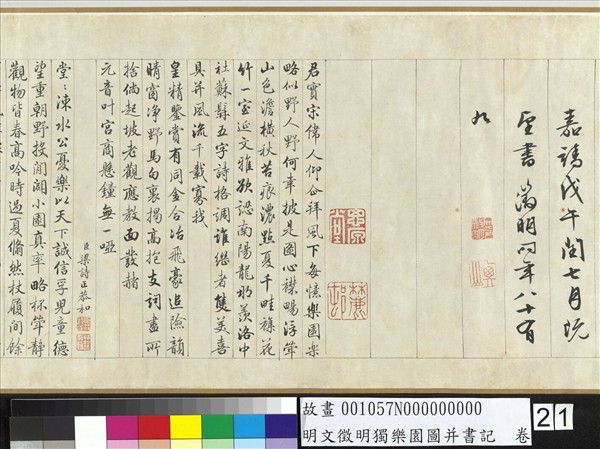 嘉靖戊午閏七月既
望書 徵明時年八十有
九
君實宗偉人仰企拜風下每憶樂園樂
略似野人野何幸披是圖心襟暢浮斝
山色澹橫秋苔痕濃點夏千畦襍花
竹一室延文雅欲認南陽龍那羨洛中
社蘇髯五字詩格調誰繼者雙美喜
具并風流千載寡我
皇精鑒賞有同金合冶飛豪追險韻
晴窗淨野馬句裏揭高抱支詞盡所
捨倘起坡老觀應教面發赭
元音叶宮商懸鐘無一啞
臣梁詩正恭和
堂〻涑水公憂樂以天下誠信孚兒童德
望重朝野投閒闢小園真率略杯斝靜
觀物皆春高吟時過夏翛然杖履間餘
故畫 001057N000000000
明文徵明獨樂園圖并書記 卷
21